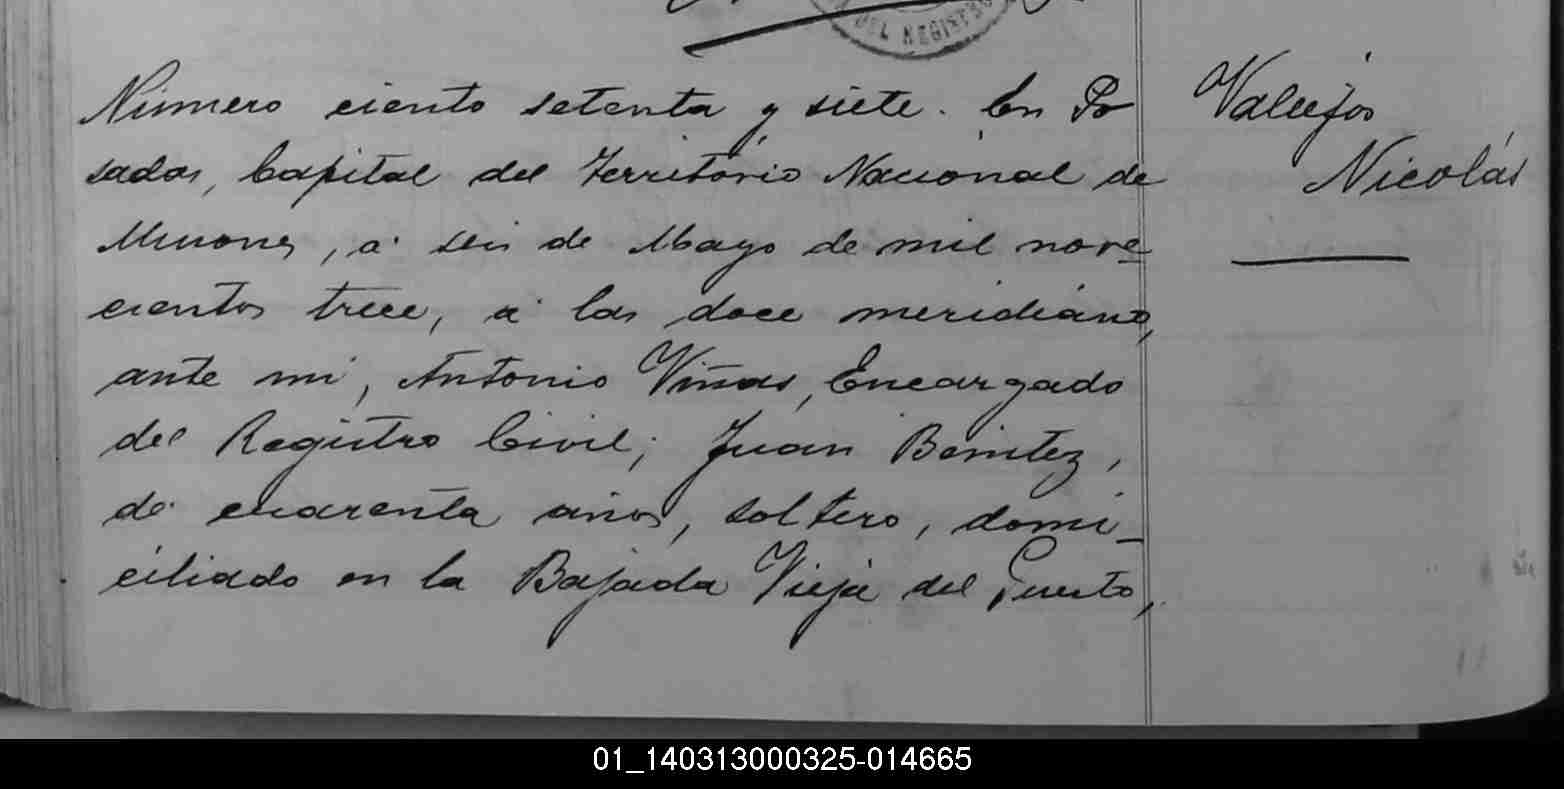 DEL REGISTRO
Número ciento setenta y siete. En Po
sadas, Capital del Territorio Nacional de
Misiones, á seis de Mayo de mil nove
cientos trece, á las doce meridiano,
ante mi, Antonio Viñas, Encargado
del Registro Civil; Juan Benitez,
de cuarenta años, soltero, domi-
ciliado en la Bajada Vieja del Puerto,
Vallejos
Nicolás
01_140313000325-014665